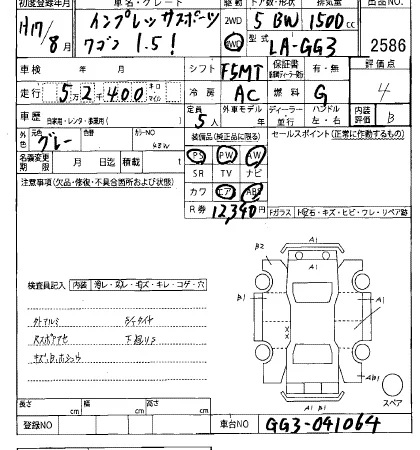 初度登録年月 車名・グレード 駆動 ドア数・形状 排気量 出品NO.
H17/8月 インプレッサスポーツ 2WD 5 BW 1500cc
ワゴン 1.5i 4WD 型式 LA-GG3 2586
車検 年 月 シフト F5MT 保証書 有・無 評価点
走行 5万2千400 キロ マイル 冷房 AC 燃料 G 4
車歴 自家用・レンタ・事業用( ) 定員 5人 外車モデル ディーラー ハンドル 左・右 内装評価 B
外色 元色 グレー 色替 カラーNO 装備品(純正品に限る) セールスポイント(正常に作動するもの)
名義変更期限 月 日迄 積載 t PS PW AW
注意事項(欠品・修復・不具合箇所および状態) SR TV ナビ
カワ エア ABS
R券 12,340円 Fガラス ト飛石・キズ・ヒビ・ワレ・リペア跡
A1
B2
検査員記入 内装 B1 A1
外アルミ
下廻りS
A1 AB1
A1 B1 スペア
長さ cm 幅 cm 高さ cm
登録NO 車台NO GG3-041064